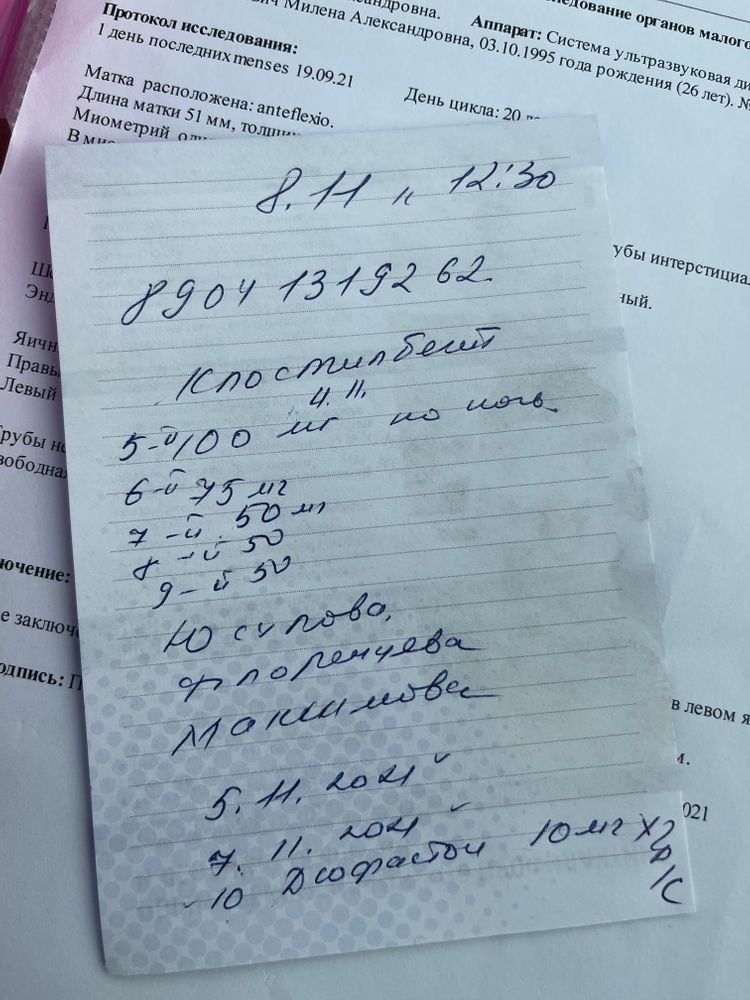 ександровна.
Аппарат: Система ультразвуковая ди
следование органов малого
вич Милена Александровна, 03.10.1995 года рождения (26 лет). №
Протокол исследования:
1 день последних menses 19.09.21
День цикла: 20
Матка расположена: anteflexio.
Длина матки 51 мм,
Миометрий
8.11 12:30
89041319262
Клостилбегит
4.11.
5-й 100 мг на ночь
6-й 75 мг
7-й 50 мг
8-й 50
9-й 50
Юсупова,
Флоренцева
Максимова
5.11.2021
7.11.2021
10 Дюфастон 10 мг х 2
р
/с
убы интерстициал
ный.
Яичн
Правы
Левый
Трубы не
вободная
лючение:
е заключе
одпись:
в левом я
м.
021